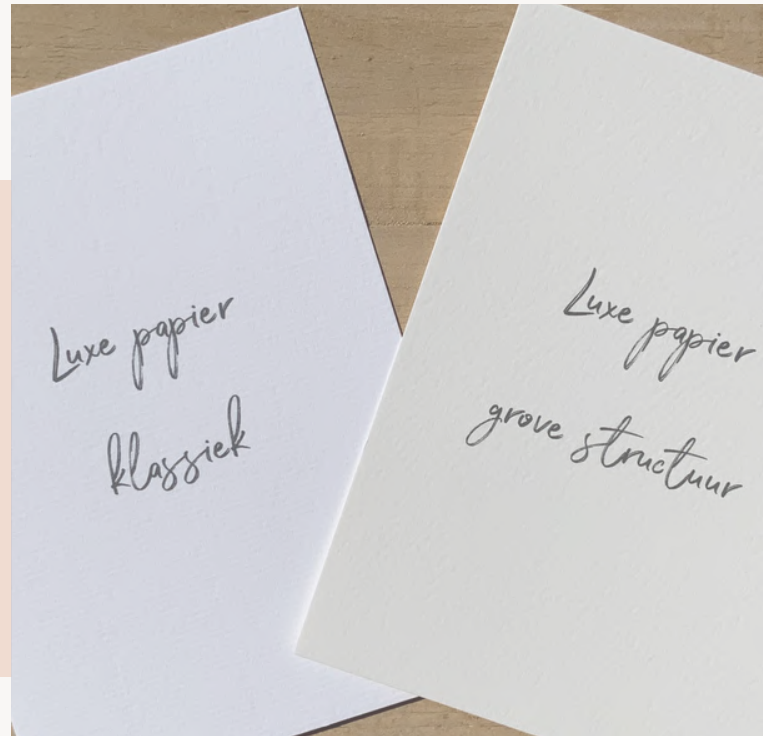 Luxe papier
klassiek
Luxe papier
grove structuur